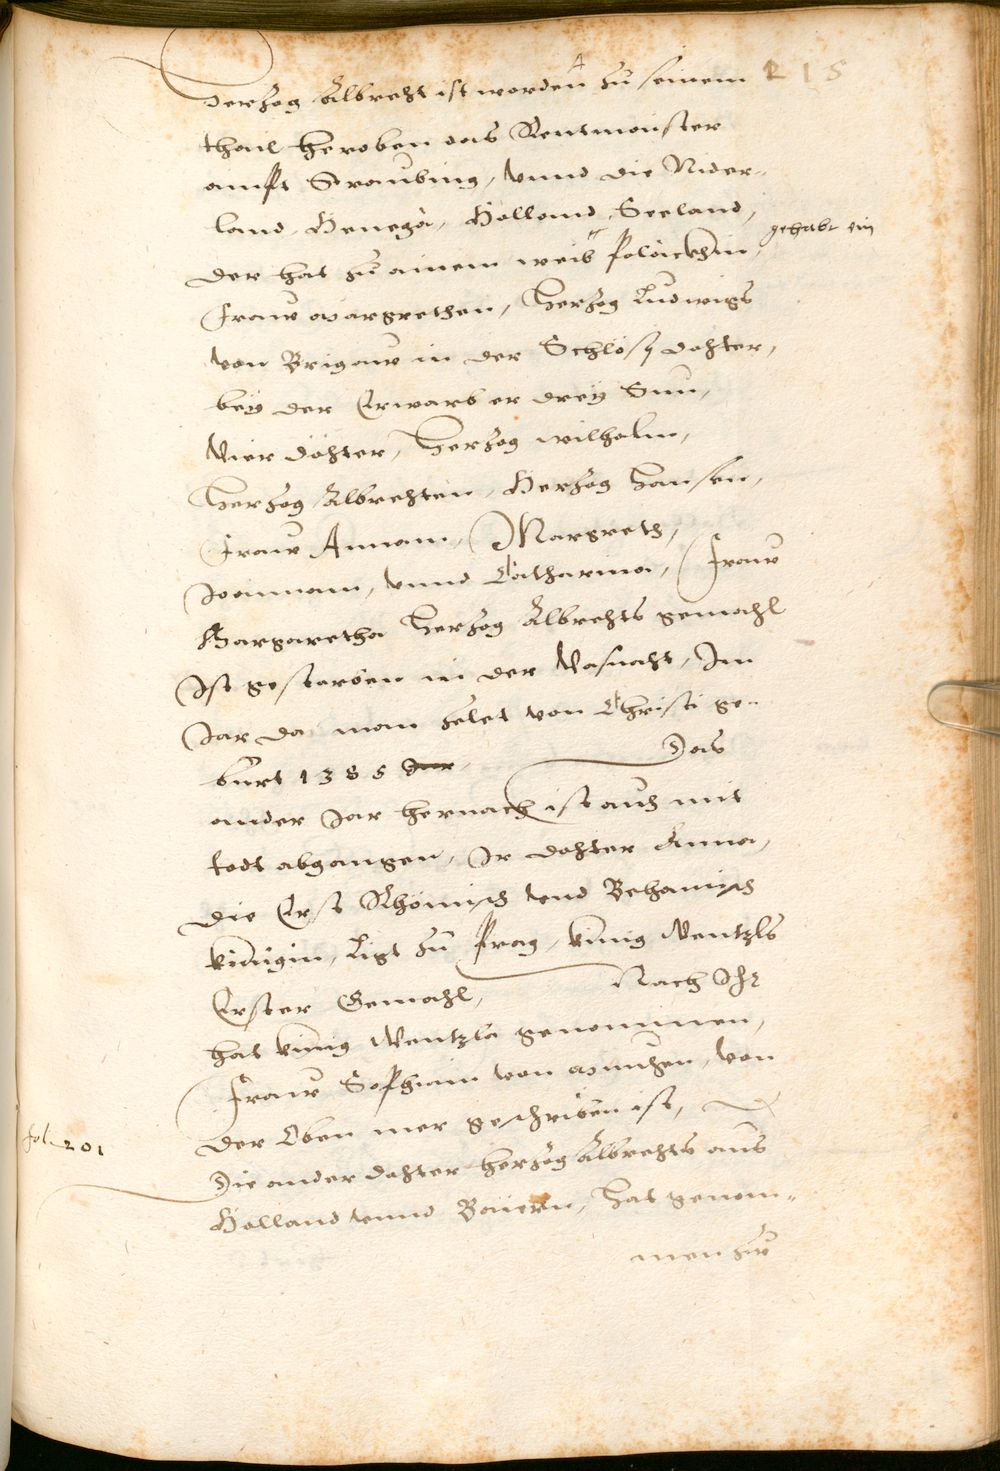 215
Herzog Albrecht ist worden zu seinem
thail heroben das Rentmaister
ampt Straubing, vnnd die Nider-
land, Henega, Holland, Seeland,
der hat zu ainem weib Polackhin, gehabt ein
fraw Margrethen, Herzog Ludwigs
von Brigaw in der Schlösy dohter,
bey der Erwarb er drey Sun,
Vier döhter, Herzog wilhalm,
Herzog Albrechten, Herzog Hansen,
fraw Annam, Margreth,
Joannam, vnnd Catharina, fraw
Margaretha Herzog Albrechts gemahl
Ist gestorben in der Vasnaht, Im
Jar da man zelet von Christi ge-
burt 1386 Das
ander Jar hernach ist auch mit
todt abgangen, Ir dohter Anna,
die Erst Rhömisch vnd Behamisch
künigin, ligt zu Prag, künig Wentzls
Erster Gemahl, Nach Ihr
hat künig Wentzla genommen,
fraw Sophiam von Munchen, von
der Oben mer geschriben ist,
fol. 201
Die ander dohter herzog Albrechts aus
Holland vnnd Baiern, hat genom-
men zur